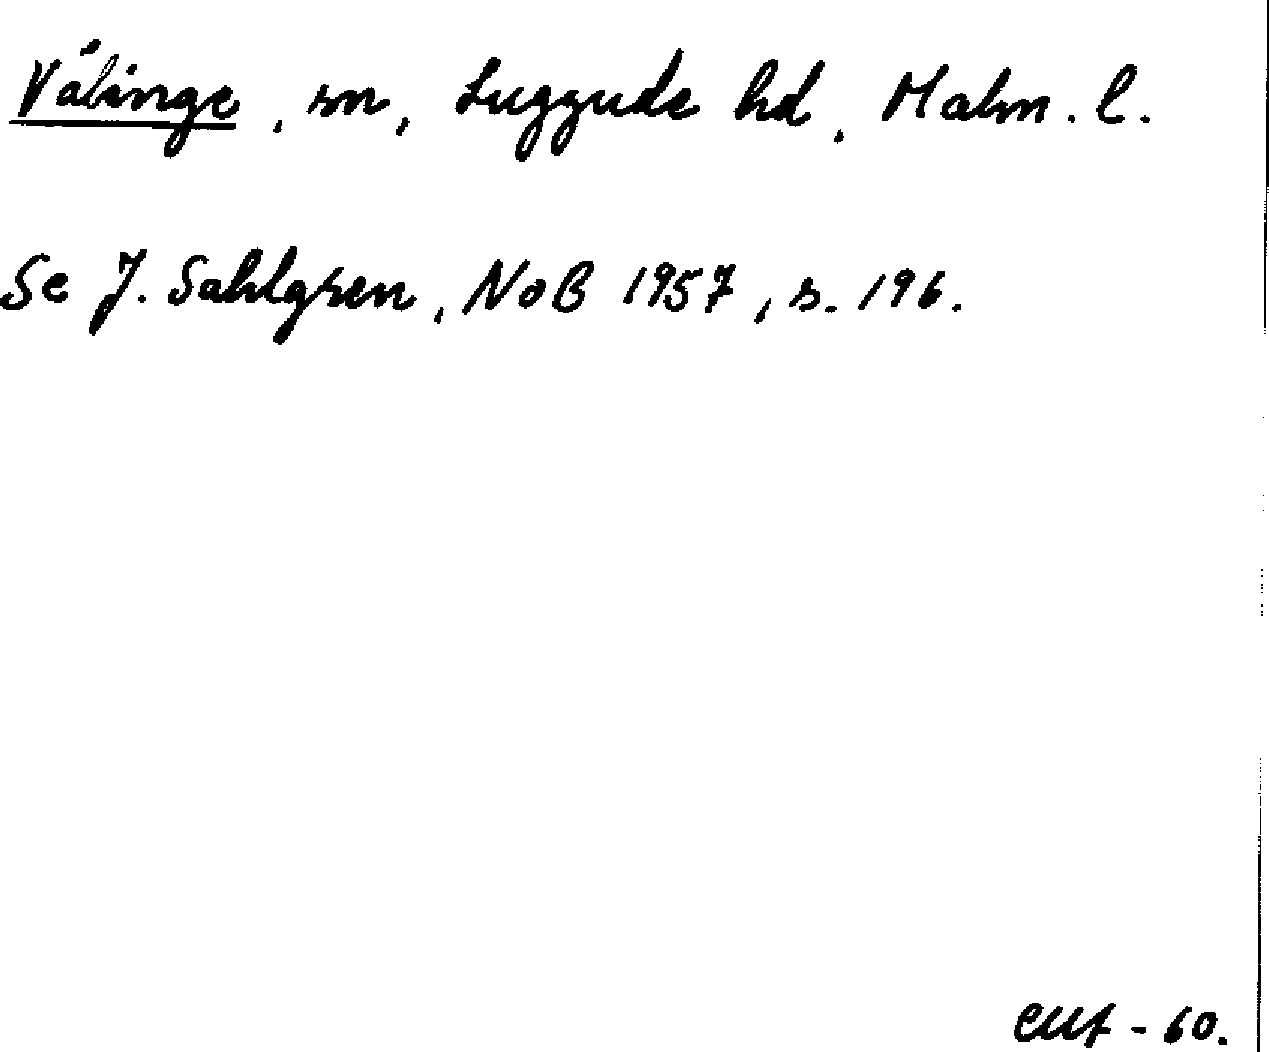 Välinge, sn, Luggude hd, Malm. l.
Se J. Sahlgren, NoB 1957, s. 196.